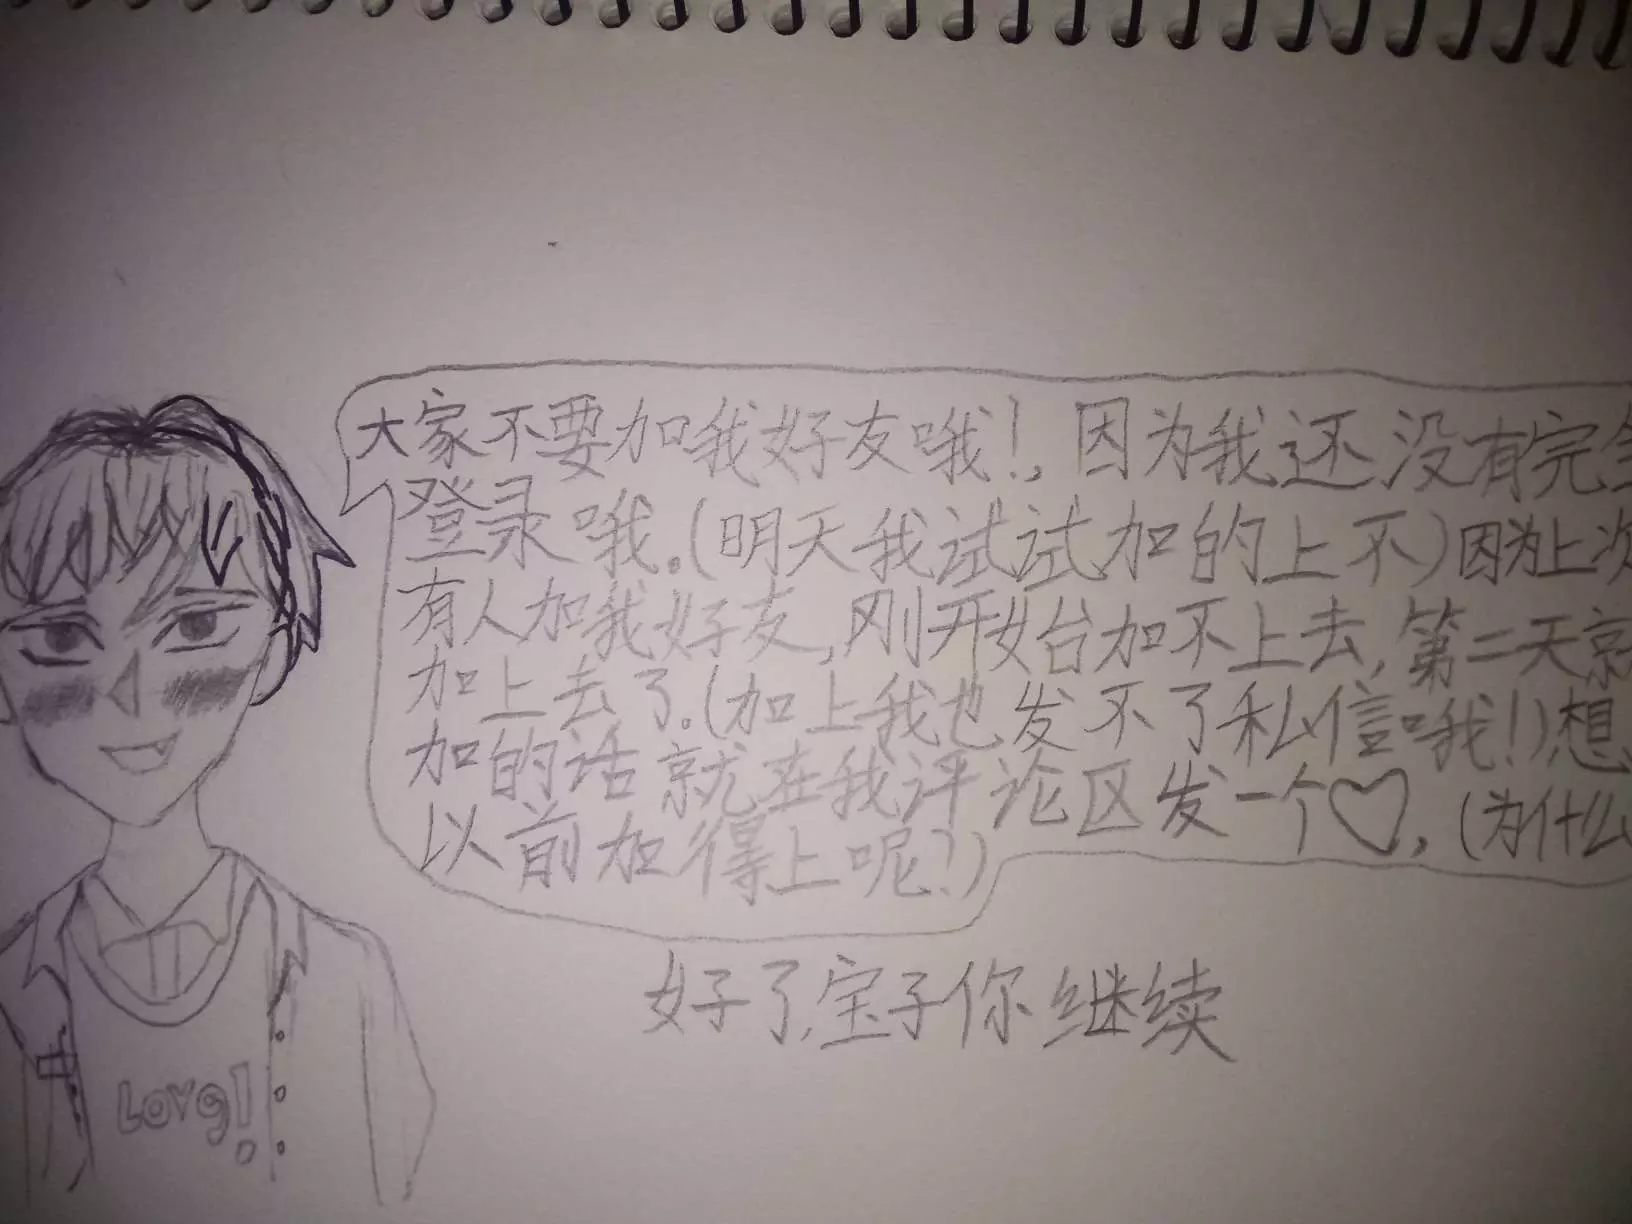 大家不要加我好友哦！，因为我还没有完全
登录哦。(明天我试试加的上不)因为上次
有人加我好友，刚开始加不上去，第二天就
加上去了.(加上我也发不了私信哦！)想
加的话就在我评论区发一个♡，(为什么
以前加得上呢？)
好了，宝子你继续
Lovg!